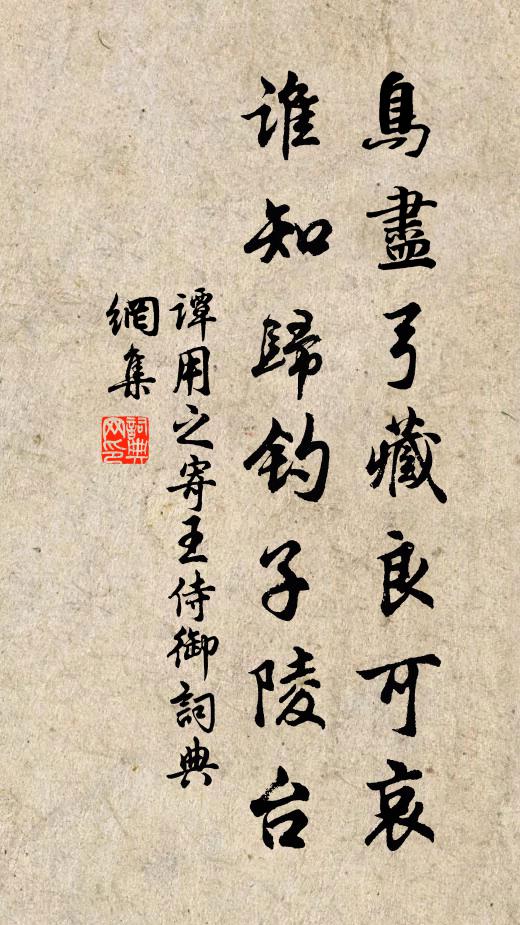 鳥盡弓藏良可哀
誰知歸釣子陵台
譚用之寄王侍御詞典
網集
詞典網印